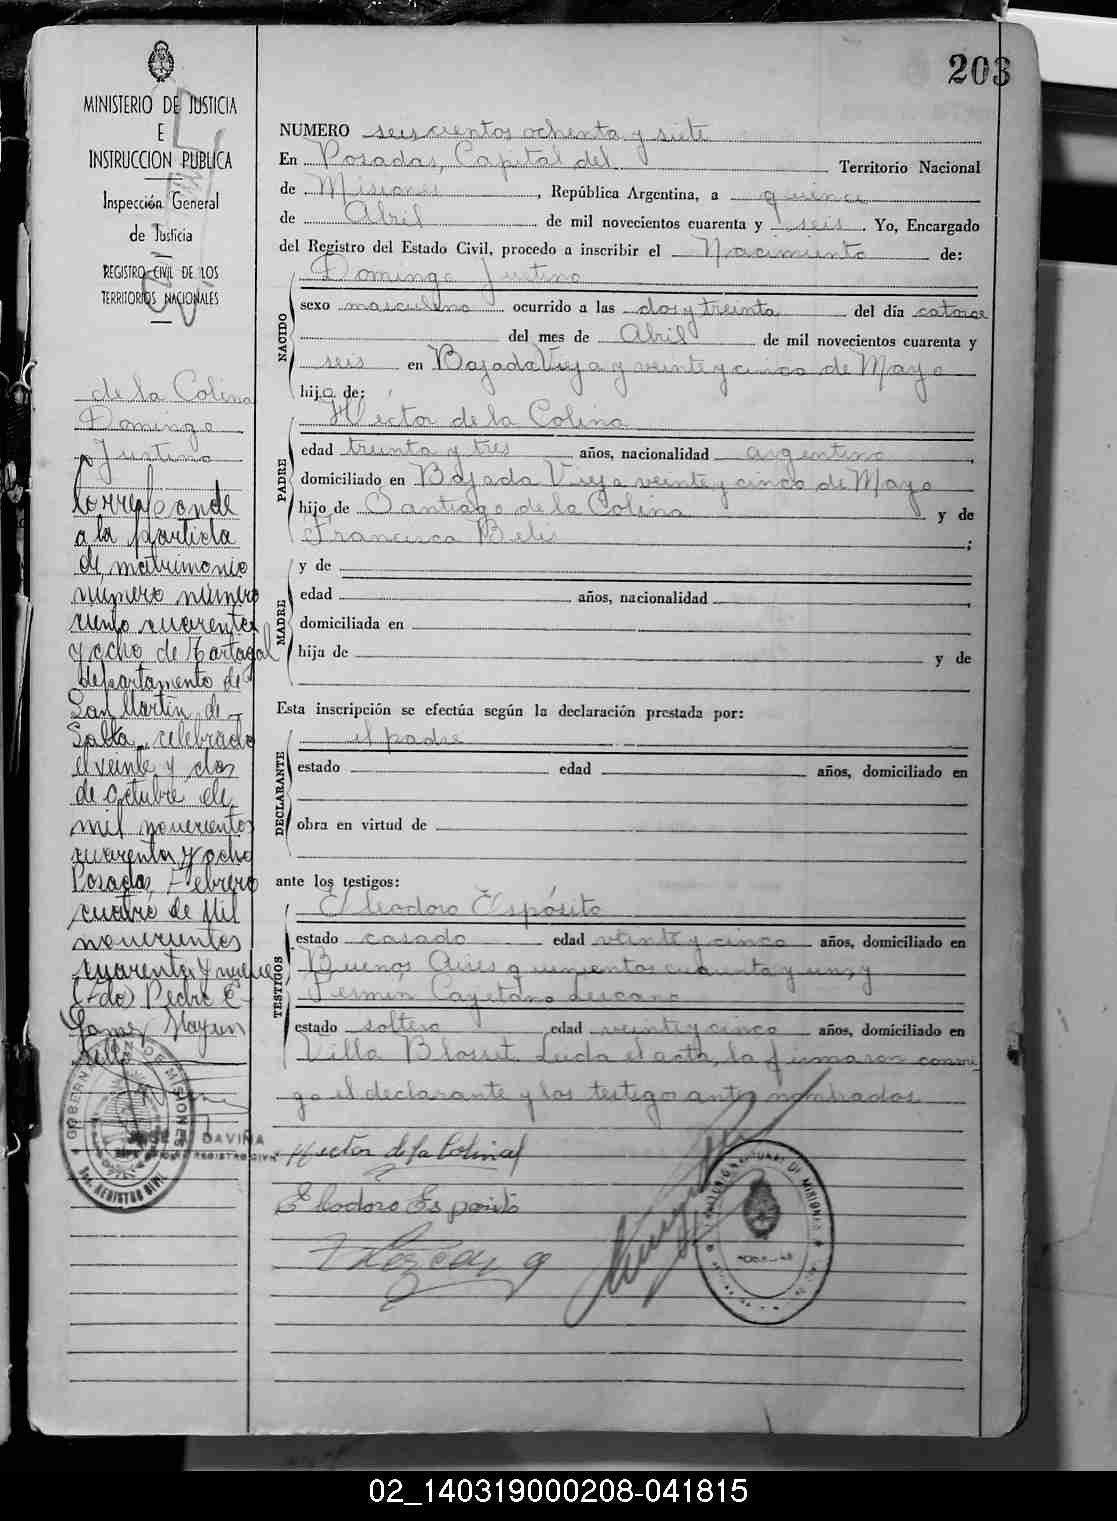 203
MINISTERIO DE JUSTICIA
E
INSTRUCCION PUBLICA
Inspección General
de Justicia
REGISTRO CIVIL DE LOS
TERRITORIOS NACIONALES
de la Colina
Domingo
Justino
Corresponde
a la partida
de matrimonio
número número
ciento cuarenta
y ocho de Tartagal
departamento de
San Martín de
Salta, celebrado
el veinte y dos
de octubre de
mil novecientos
cuarenta y ocho
Posadas, Febrero
cuatro de Mil
novecientos
cuarenta y nueve
Fdo) Pedro E
Gomez
sello
GOBERN MISIONES
JOSE DAVIÑA
JEFE REGISTRO CIVIL
REGISTRO CIVIL
NUMERO seiscientos ochenta y siete
En Posadas, Capital del Territorio Nacional
de Misiones, República Argentina, a quince
de Abril de mil novecientos cuarenta y seis. Yo, Encargado
del Registro del Estado Civil, procedo a inscribir el Nacimiento de:
NACIDO
Domingo Justino
sexo masculino ocurrido a las dos y treinta del día catorce
del mes de Abril de mil novecientos cuarenta y
seis en Bajada Vieja y veinte y cinco de Mayo
hijo de:
PADRE
Héctor de la Colina
edad treinta y tres años, nacionalidad argentino,
domiciliado en Bajada Vieja veinte y cinco de Mayo
hijo de Santiago de la Colina y de
Francisca Belis;
MADRE
y de
edad años, nacionalidad,
domiciliada en
hija de y de
Esta inscripción se efectúa según la declaración prestada por:
DECLARANTE
el padre
estado edad años, domiciliado en
obra en virtud de
ante los testigos:
TESTIGOS
Eleodoro Espósito
estado casado edad veinte y cinco años, domiciliado en
Buenos Aires quinientos cuarenta y uno, y
Fermín Cayetano Lescano
estado soltero edad veinte y cinco años, domiciliado en
Villa Blosset. Leida el acta, la firmaron conmi
go el declarante y los testigos antes nombrados.
Hector de la Colina
Eleodoro Esposito
02_140319000208-041815